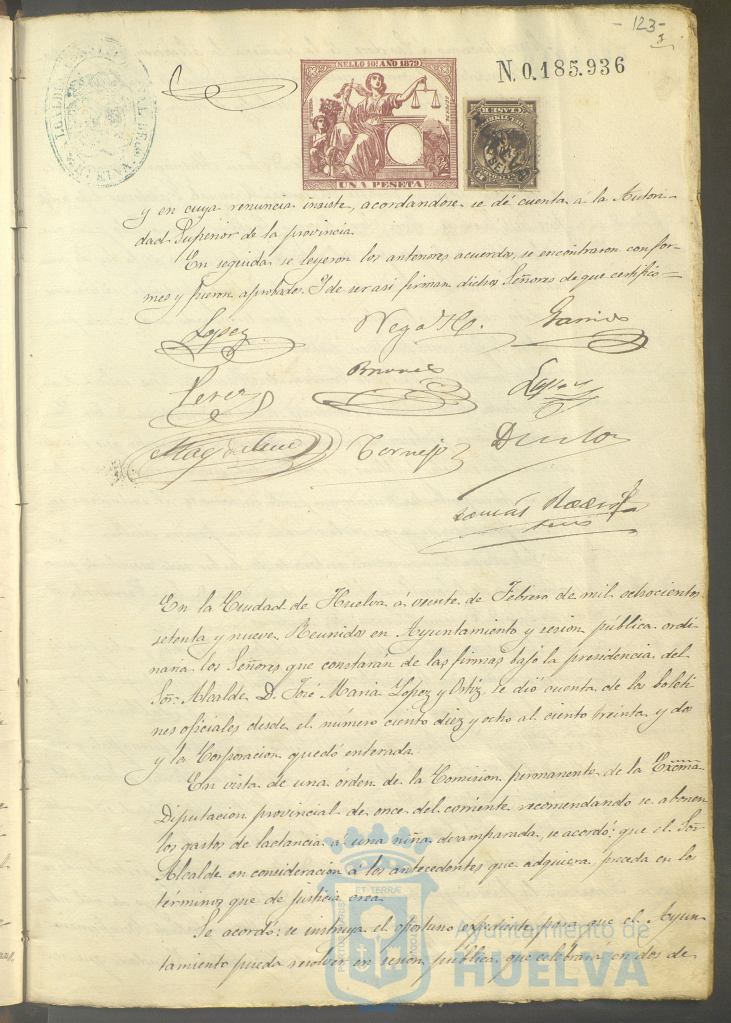 - 123 -
3
SELLO 10º AÑO 1879
UNA PESETA
N. 0.185.936
y en cuya renuncia insiste, acordandose se dé cuenta á la Autori-
dad Superior de la provincia.
En seguida se leyeron los anteriores acuerdos, se encontraron confor-
mes y fueron aprobados. I de ser asi firman dichos Señores de que certifico =
Lopez
Vega H.
Garrido
Perez
Lopez
Magdalena
Tornejo
Tomás
En la Ciudad de Huelva á veinte de Febrero de mil ochocientos
setenta y nueve. Reunidos en Ayuntamiento y sesion pública ordi-
naria los Señores que constarán de las firmas bajo la presidencia del
Sor. Alcalde D. José Maria Lopez y Ortiz se dió cuenta de los boleti-
nes oficiales desde el número ciento diez y ocho al ciento treinta y dos
y la Corporacion quedó enterada.
En vista de una órden de la Comision permanente de la Excma.
Diputacion provincial de once del corriente recomendando se abonen
los gastos de lactancia á una niña desamparada, se acordó: que el Sor.
Alcalde en consideracion á los antecedentes que adquiera proceda en los
términos que de justicia crea.
Se acordó: se instruya el oportuno expediente para que el Ayun-
tamiento pueda resolver en sesion pública que celebrará en dos de
Ayuntamiento de
HUELVA